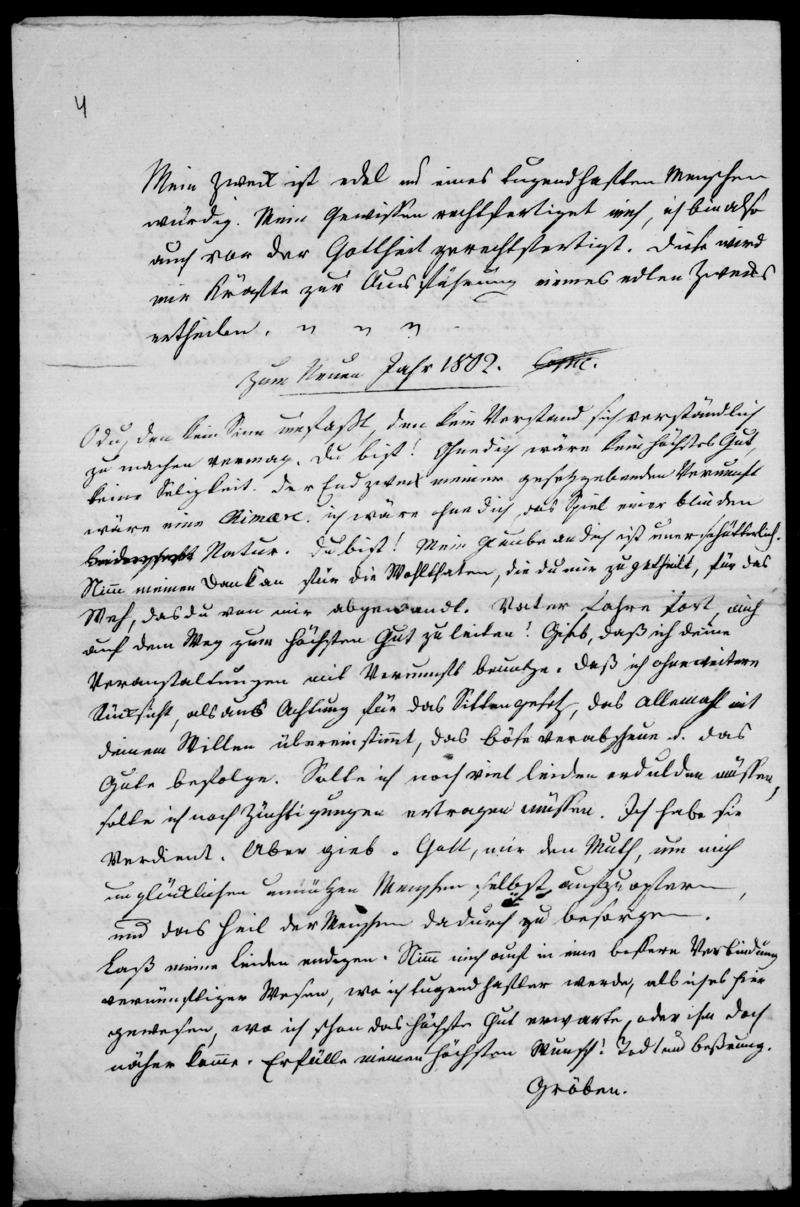 4
Mein Zweck ist edel und eines tugendhaften Menschen
würdig. Mein Gewissen rechtfertiget mich, ich bin also
auch vor der Gottheit gerechtfertigt. Diese wird
mir Kräfte zur Ausführung meines edlen Zwecks
ertheilen.
Zum Neuen Jahr 1802.
O du, den kein Sinn umfaßt, den kein Verstand sich verständlich
zu machen vermag. Du bist! Ohne dich wäre kein höchstes Gut,
keine Seligkeit. Der Endzweck meiner gesetzgebenden Vernunft
wäre eine Chimäre. ich wäre ohne dich das Spiel einer blinden
Natur. Du bist! Mein Glaube an dich ist unerschütterlich.
Nimm meinen Dank an für die Wohlthaten, die du mir zugetheilt, für das
Weh, das du von mir abgewandt. Vater fahre fort, mich
auf dem Weg zum höchsten Gut zu leiten! Gieb, daß ich deine
Veranstaltungen mit Vernunft benutze. daß ich ohne weitere
Rücksicht, als aus Achtung für das Sittengesetz, das allemahl mit
deinem Willen übereinstimmt, das böse verabscheue u. das
Gute befolge. Sollte ich noch viel leiden erdulden müssen,
sollte ich noch Züchtigungen ertragen müssen. Ich habe sie
verdient. Aber gieb o Gott, mir den Muth, um mich
unglücklichen unnützen Menschen selbst aufzuopfern,
und das Heil der Menschen dadurch zu besorgen.
Laß meine leiden endigen. Nimm mich auf in eine bessere Verbindung
vernünftiger Wesen, wo ich tugendhafter werde, als ich es hier
gewesen, wo ich schon das höchste Gut erwarte, oder ihm doch
näher komme. Erfülle meinen höchsten Wunsch! Tod und beßrung.
Gröben.